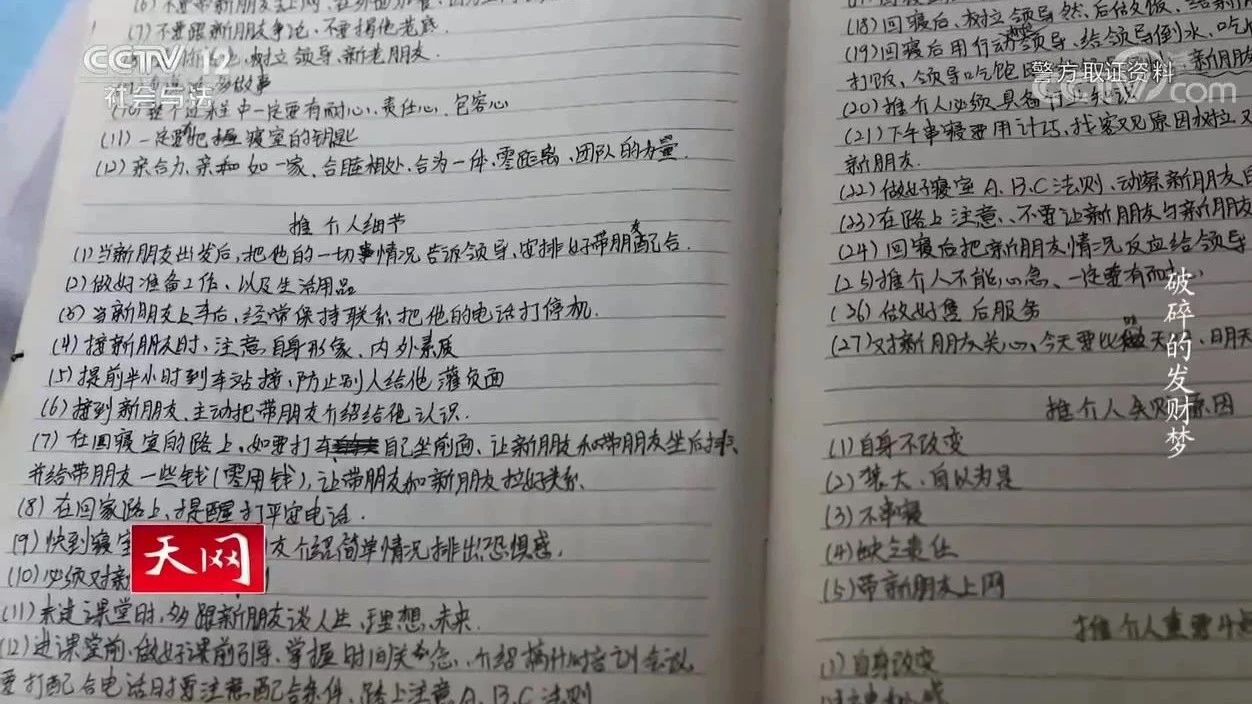 CCTV 12
社会与法
警方取证资料
com
天网
破碎的发财梦
(7)不要跟新朋友争论,不要揭他老底.
树立领导、新老朋友.
做事
(10)整个过程中一定要有耐心、责任心、包容心
(11)一定要把握寝室的钥匙
(12)亲合力、亲和如一家、合睦相处、合为一体、零距离、团队的力量.
推介人细节
(1)当新朋友出发后,把他的一切事情况告诉领导,安排好带朋友配合.
(2)做好准备工作,以及生活用品
(3)当新朋友上车后,经常保持联系把他的电话打停机.
(4)接新朋友时、注意自身形象、内外素质
(5)提前半小时到车站接,防止别人给他灌负面
(6)接到新朋友、主动把带朋友介绍给他认识.
(7)在回寝室的路上,如要打车自己坐前面、让新朋友和带朋友坐后排、
并给带朋友一些钱(零用钱),让带朋友和新朋友拉好关系.
(8)在回家路上,提醒打平安电话.
(9)快到寝室 友介绍简单情况排出恐惧感.
(10)必须对新
(11)未进课堂时,多跟新朋友谈人生、理想、未来.
(12)进课堂前,做好课前引导、掌握时间
要打配合电话时要注意配合条件、路上注意A、B、C法则
(18)回寝后、树立领导然后做饭、
(19)回寝后用行动领导、给领导倒水、
打饭、领导吃饱 新朋友
(20)推介人必须具备行业知识
(21)下午串寝要用计巧,找客观原因树立
新朋友.
(22)做好寝室A、B、C法则、动察新朋友
(23)在路上注意、不要让新朋友与新朋友
(24)回寝后把新朋友情况反应给领导
(25)推介人不能心急、一定要有耐
(26)做好售后服务
(27)对新朋友关心、今天要比 天 明天
推介人失败原因
(1)自身不改变
(2)装大、自以为是
(3)不串寝
(4)缺乏责任
(5)带新朋友上网
推介人重要
(1)自身改变